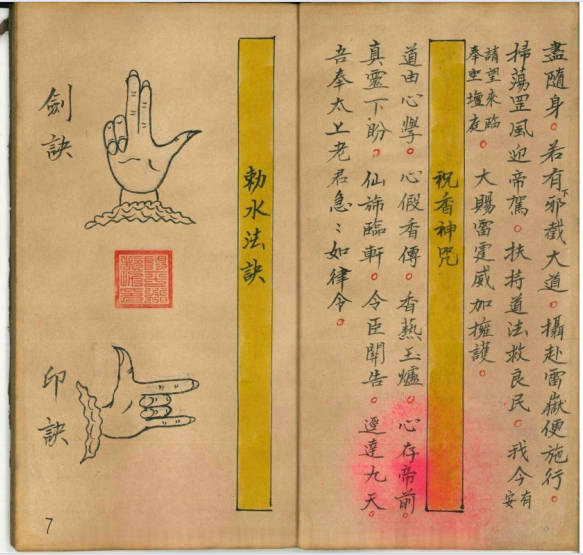 盡隨身。若有下邪截大道。攝赴雷嶽便施行。
掃蕩罡風迎帝駕。扶持道法救良民。我今有安
請望來臨
奉聖壇庭。大賜雷霆威加擁護。
祝香神咒
道由心學。心假香傳。香爇玉爐。心存帝前。
真靈下盼。仙旆臨軒。令臣關告。逕達九天。
吾奉太上老君急〻如律令。
勅水法訣
劍訣
印訣
7